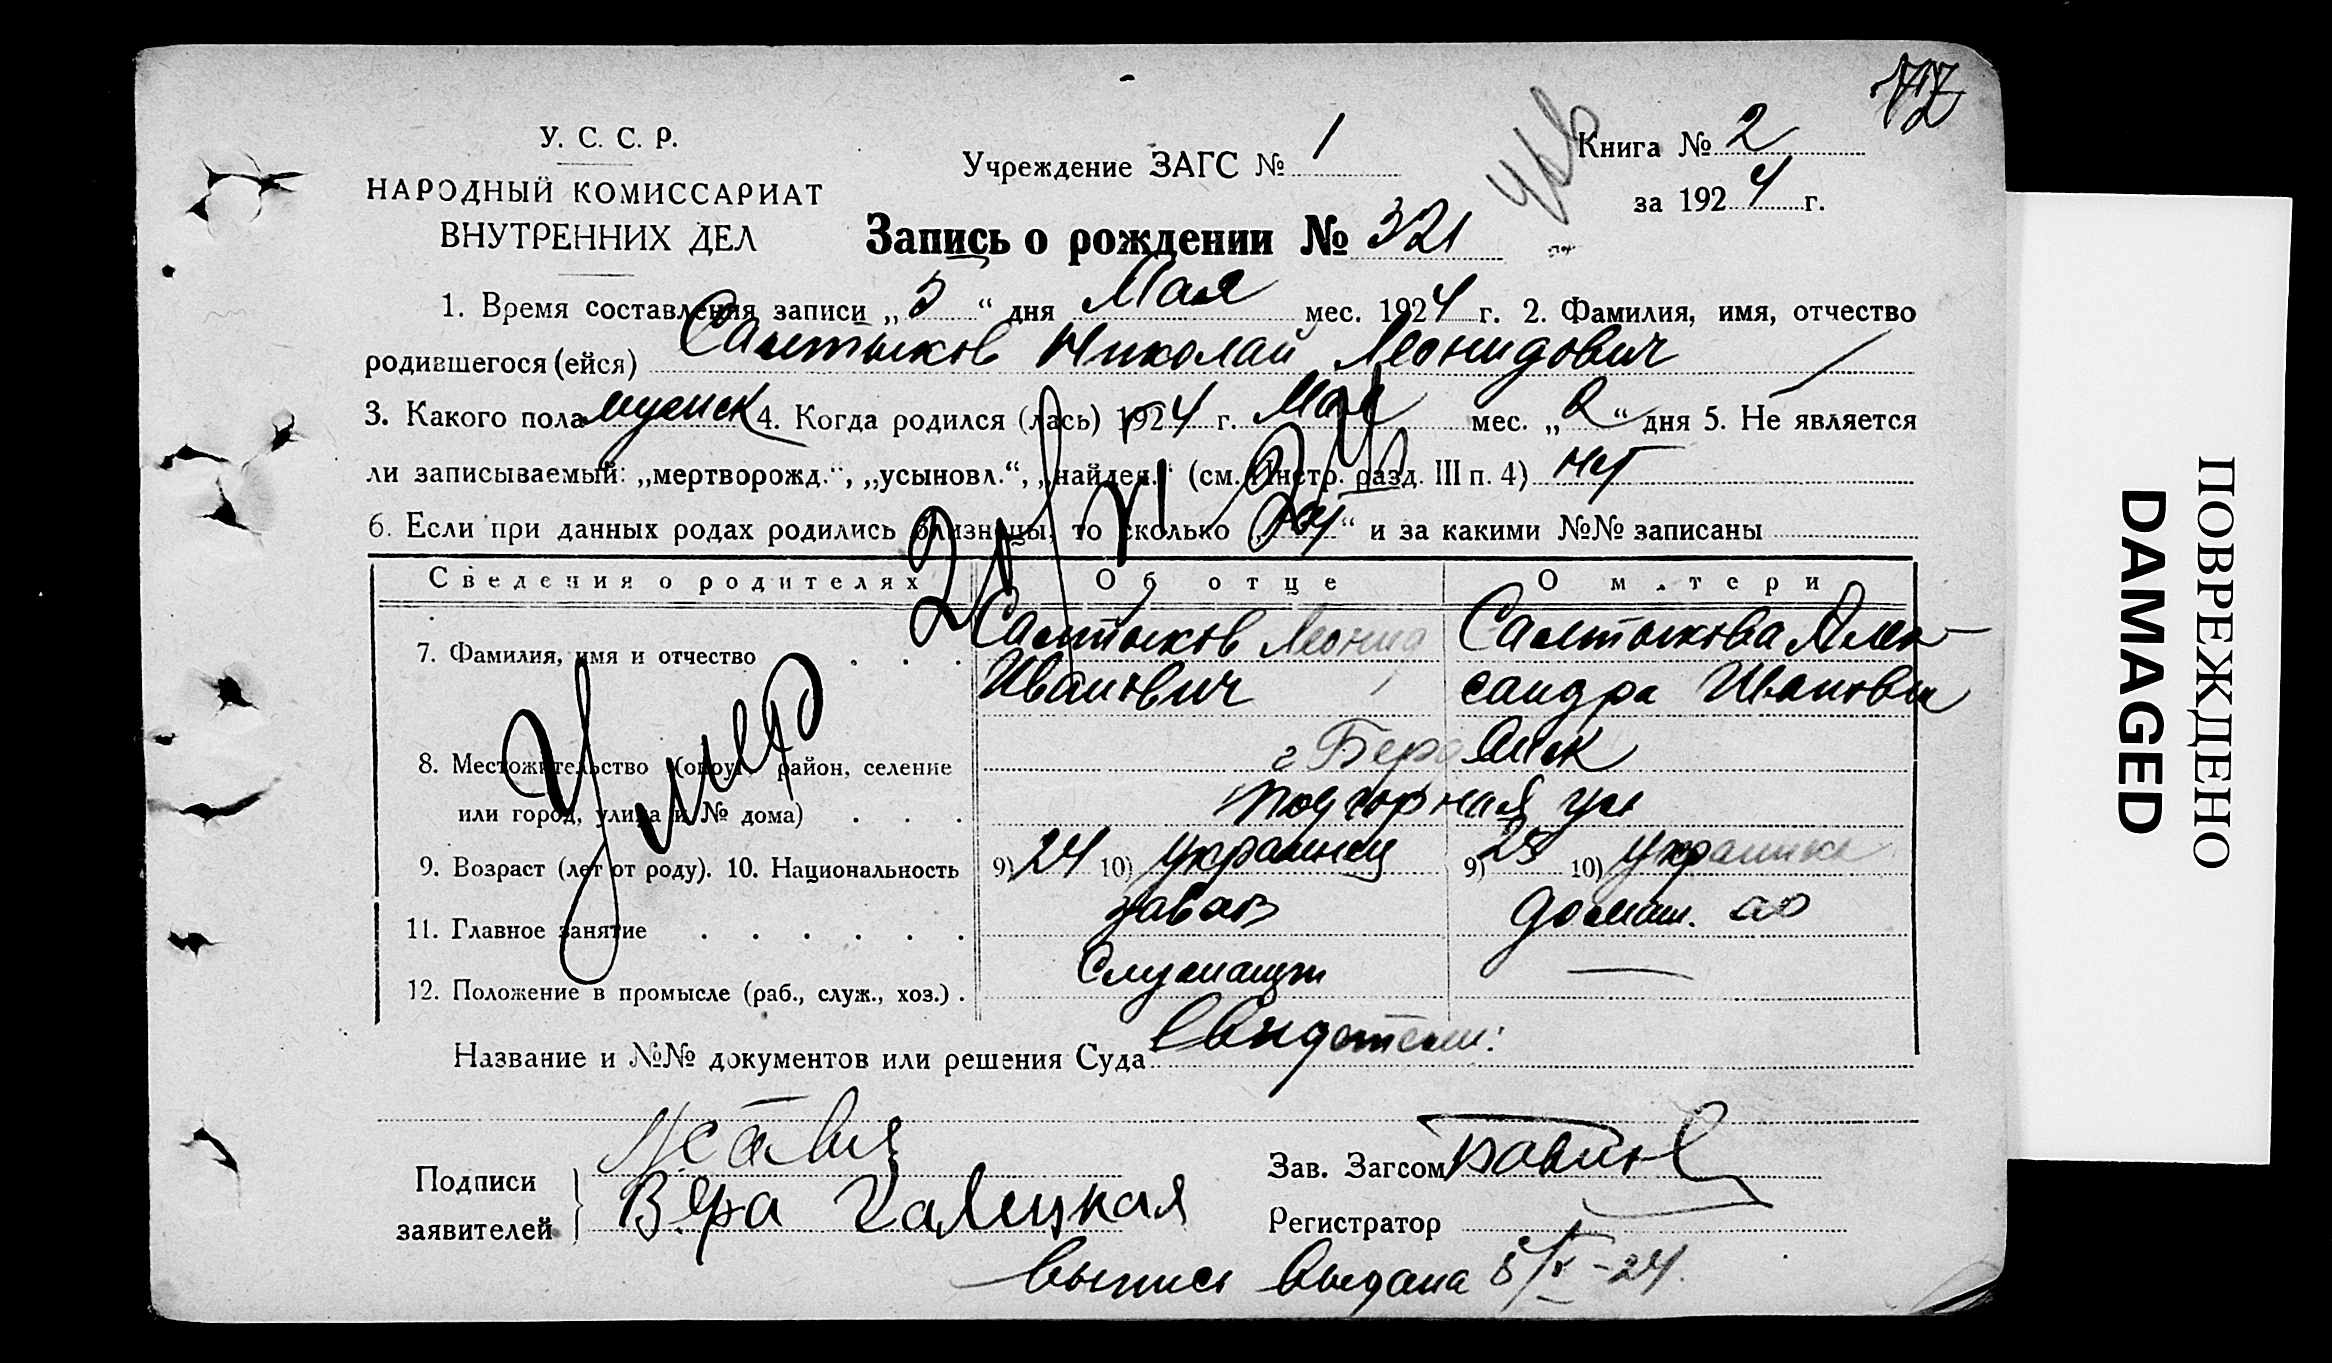 У. С. С. Р.
НАРОДНЫЙ КОМИССАРИАТ
ВНУТРЕННИХ ДЕЛ
Учреждение ЗАГС № 1
Книга № 2
за 1924 г.
Запись о рождении № 321
1. Время составления записи „5“ дня Мая мес. 1924 г. 2. Фамилия, имя, отчество
родившегося (ейся) Салтыков Николай Леонидович
3. Какого пола мужск 4. Когда родился (лась) 1924 г. Мая мес. „2“ дня 5. Не является
ли записываемый: „мертворожд.“, „усыновл.“, „найден.“ (см. Инстр. разд. III п. 4) нет
6. Если при данных родах родились близнецы, то сколько „“ и за какими №№ записаны
Сведения о родителях Об отце О матери
7. Фамилия, имя и отчество . . . Салтыков Леонид Салтыкова Алек-
Иванович сандра Ивановн
8. Местожительство (округ, район, селение г Бердянск
или город, улица и № дома) . . . Подгорная ул
9. Возраст (лет от роду). 10. Национальность 9) 24 10) украинец 9) 23 10) украинка
11. Главное занятие . . . . . . домаш. хоз
12. Положение в промысле (раб., служ., хоз.) . Служащий —
Название и №№ документов или решения Суда Свидетели:
Подписи
заявителей
Вера Галецкая
Зав. Загсом
Регистратор
Выпись выдана 5/V-24.
Умер
ПОВРЕЖДЕНО
DAMAGED